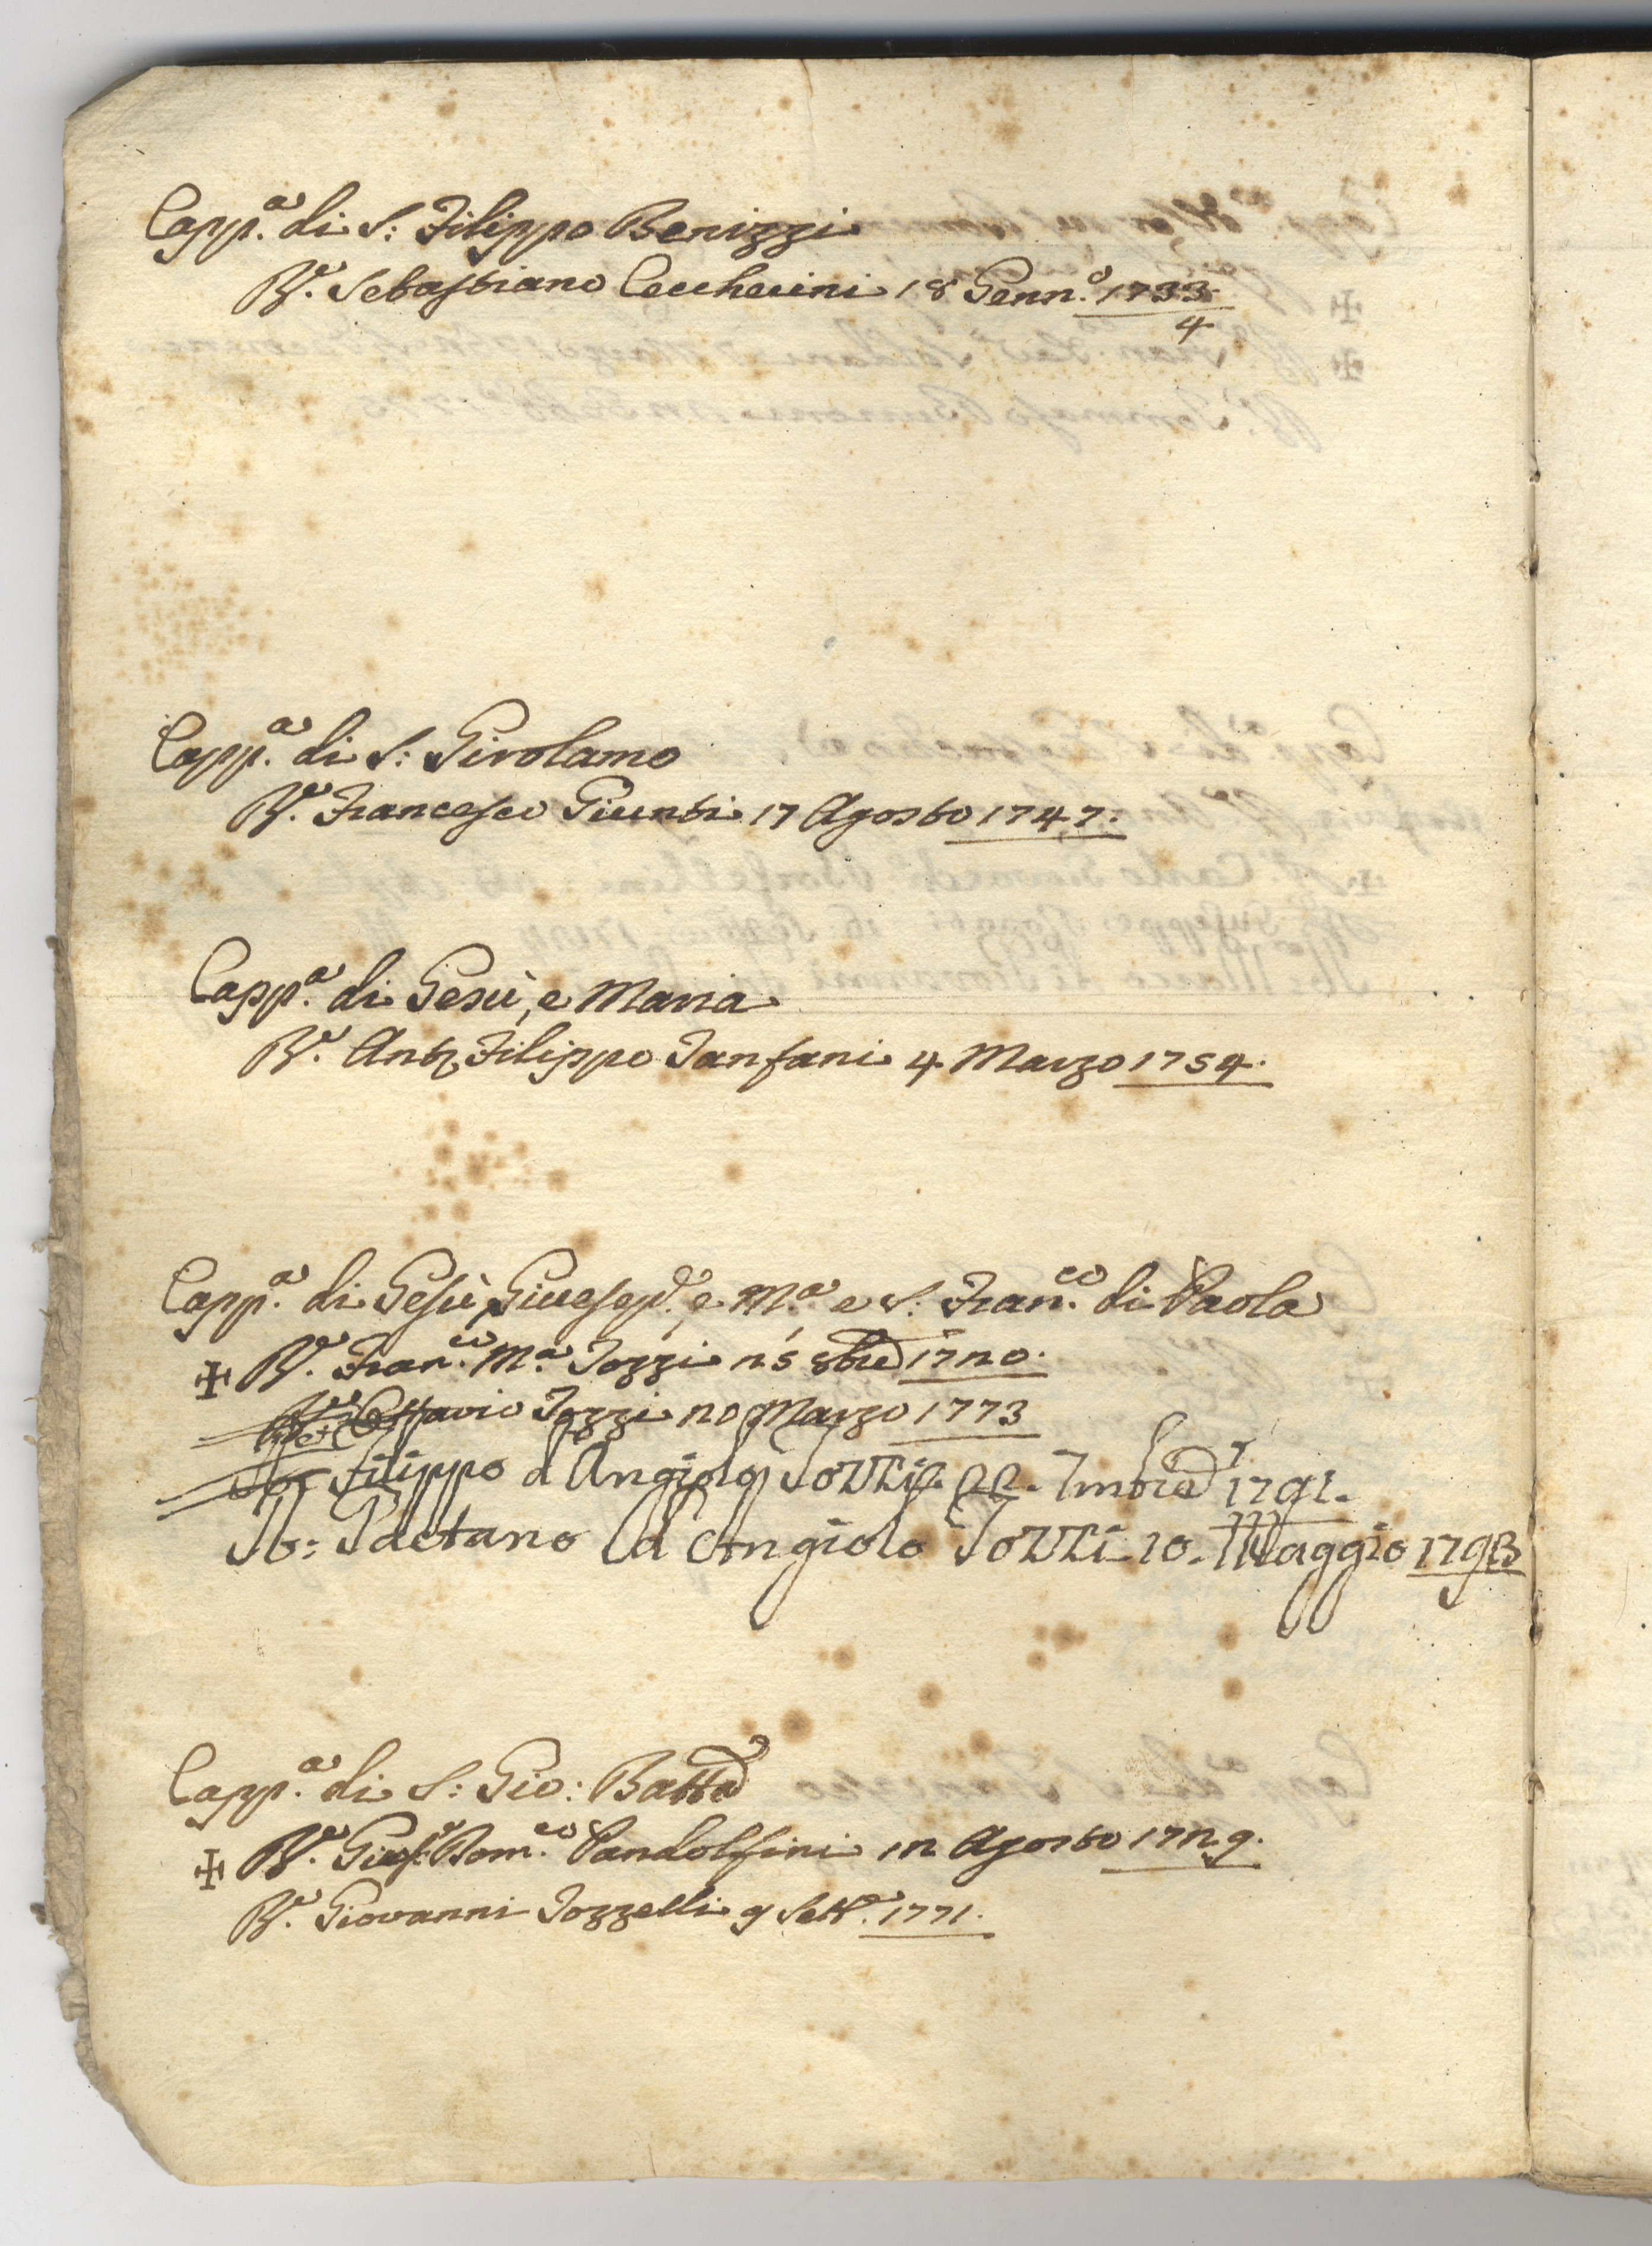 Capp.a di S: Filippo Benizzi
R.e Sebastiano Ceccherini 18 Genn.o 1733
4
Capp.a di S: Girolamo
R.e Francesco Giunti 17 Agosto 1747.
Capp.a di Gesù, e Maria
R.e Ant.o Filippo Tanfani 4 Marzo 1754.
Capp.a di Gesù, Giusep.e, e M.a e S: Fran.co di Paola
✠ R.e Fran.co M.a Tozzi 25 8bre 1720.
Ottavio Tozzi 20 Marzo 1773
Filippo d Angiolo Tozzi 22. 7mbre 1791.
Gaetano d Angiolo Tozzi 10. Maggio 1793
Capp.a di S: Gio: Batta
✠ R.e Gius.e Dom.co Pandolfini 12 Agosto 1729.
R.e Giovanni Tozzelli 9 Sett.e 1771.